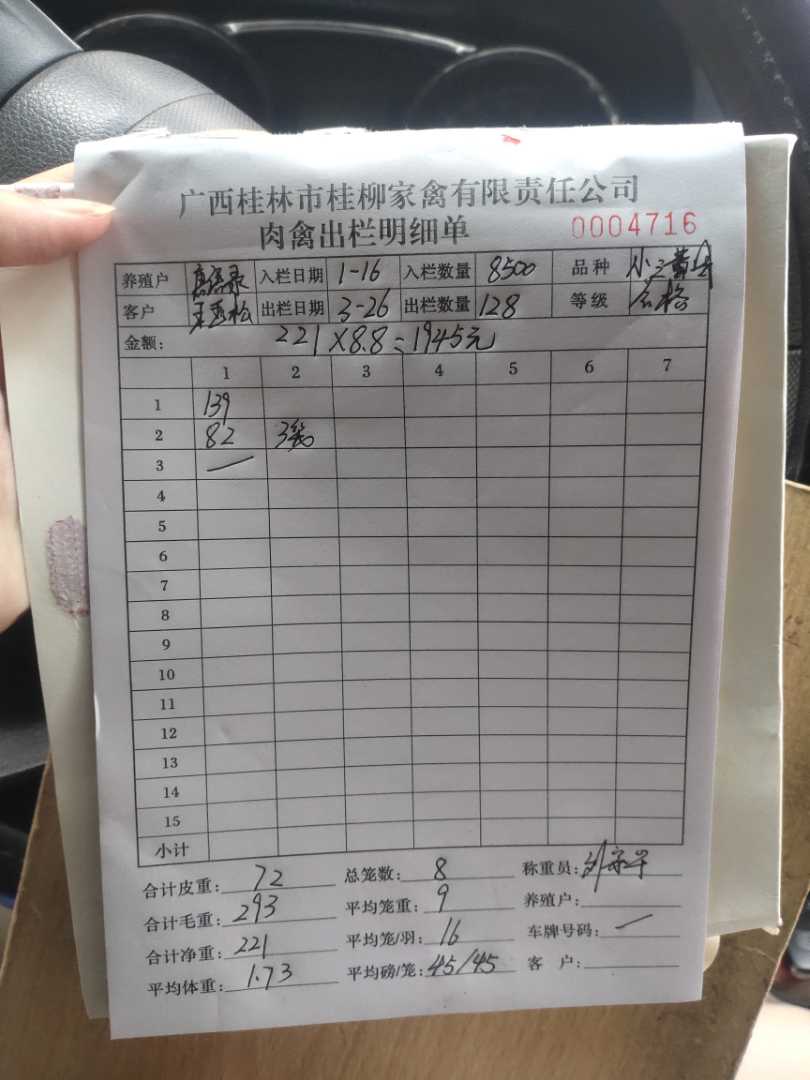 广西桂林市桂柳家禽有限责任公司
肉禽出栏明细单 0004716
养殖户 入栏日期 1-16 入栏数量 8500 品种 小
客户 出栏日期 3-26 出栏数量 128 等级 合格
金额: 221×8.8=1945元
1 2 3 4 5 6 7
1 139
2 82 3
3 —
4
5
6
7
8
9
10
11
12
13
14
15
小计
合计皮重: 72 总笼数: 8 称重员:
合计毛重: 293 平均笼重: 9 养殖户:
合计净重: 221 平均笼/羽: 16 车牌号码: —
平均体重: 1.73 平均磅/笼: 45/45 客 户: